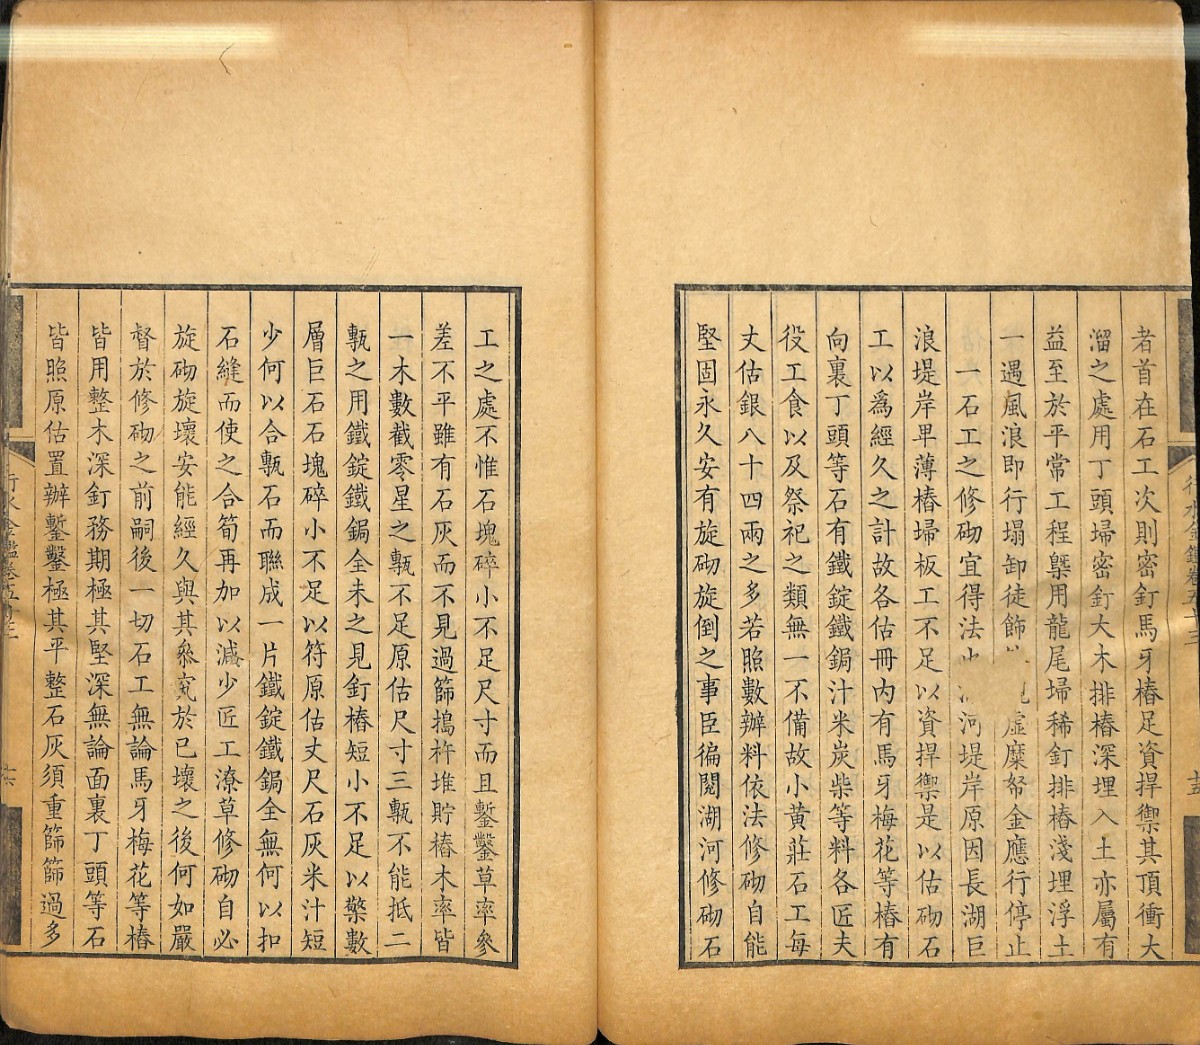 者首在石工次則密釘馬牙樁足資捍禦其頂衝大
溜之處用丁頭埽密釘大木排樁深埋入土亦屬有
益至於平常工程槩用龍尾埽稀釘排樁淺埋浮土
一遇風浪即行塌卸徒飾虛糜帑金應行停止
一石工之修砌宜得法河堤岸原因長湖巨
浪堤岸卑薄樁埽板工不足以資捍禦是以估砌石
工以爲經久之計故各估冊內有馬牙梅花等樁有
向裏丁頭等石有鐵錠鐵鋦汁米炭柴等料各匠夫
役工食以及祭祀之類無一不備故小黃莊石工每
丈估銀八十四兩之多若照數辦料依法修砌自能
堅固永久安有旋砌旋倒之事臣徧閱湖河修砌石
工之處不惟石塊碎小不足尺寸而且鏨鑿草率參
差不平雖有石灰而不見過篩搗杵堆貯樁木率皆
一木數截零星之甎不足原估尺寸三甎不能抵二
甎之用鐵錠鐵鋦全未之見釘樁短小不足以檠數
層巨石石塊碎小不足以符原估丈尺石灰米汁短
少何以合甎石而聯成一片鐵錠鐵鋦全無何以扣
石縫而使之合筍再加以減少匠工潦草修砌自必
旋砌旋壞安能經久與其叅究於已壞之後何如嚴
督於修砌之前嗣後一切石工無論馬牙梅花等樁
皆用整木深釘務期極其堅深無論面裏丁頭等石
皆照原估置辦鏨鑿極其平整石灰須重篩篩過多